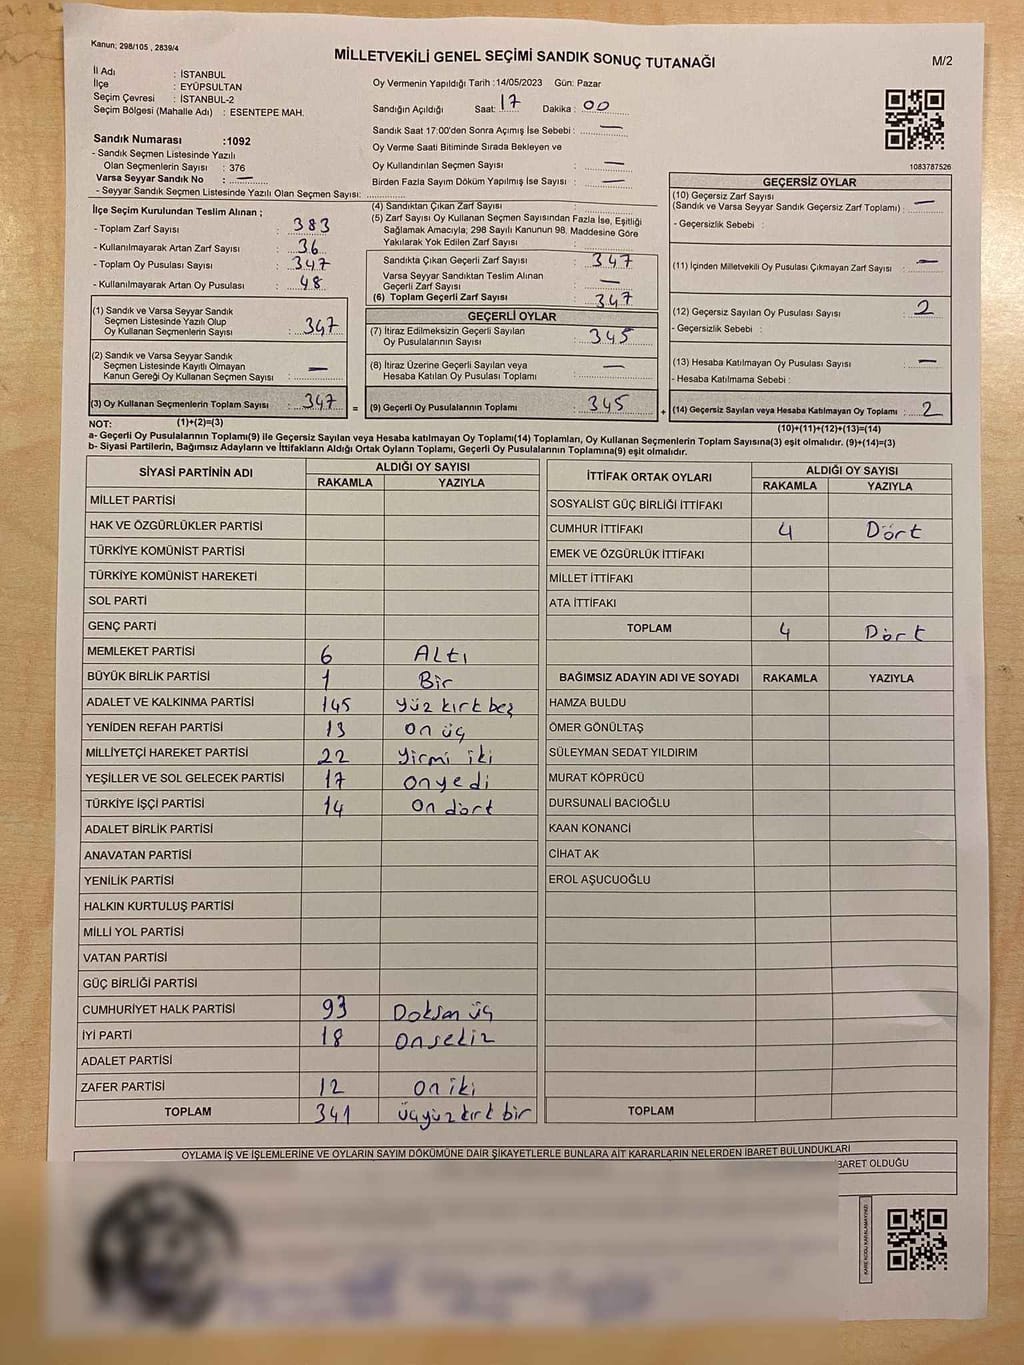 Kanun; 298/105 , 2839/4
MİLLETVEKİLİ GENEL SEÇİMİ SANDIK SONUÇ TUTANAĞI
M/2
İl Adı : İSTANBUL
İlçe : EYÜPSULTAN
Seçim Çevresi : İSTANBUL-2
Seçim Bölgesi (Mahalle Adı) : ESENTEPE MAH.
Oy Vermenin Yapıldığı Tarih :14/05/2023 Gün: Pazar
Sandığın Açıldığı Saat: 17 Dakika : 00
Sandık Saat 17:00'den Sonra Açımış İse Sebebi : —
Oy Verme Saati Bitiminde Sırada Bekleyen ve
Oy Kullandırılan Seçmen Sayısı : —
Birden Fazla Sayım Döküm Yapılmış İse Sayısı : —
1083787526
Sandık Numarası :1092
- Sandık Seçmen Listesinde Yazılı
Olan Seçmenlerin Sayısı : 376
Varsa Seyyar Sandık No : —
- Seyyar Sandık Seçmen Listesinde Yazılı Olan Seçmen Sayısı:
İlçe Seçim Kurulundan Teslim Alınan ;
- Toplam Zarf Sayısı : 383
- Kullanılmayarak Artan Zarf Sayısı : 36
- Toplam Oy Pusulası Sayısı : 347
- Kullanılmayarak Artan Oy Pusulası : 48
(1) Sandık ve Varsa Seyyar Sandık
Seçmen Listesinde Yazılı Olup
Oy Kullanan Seçmenlerin Sayısı : 347
(2) Sandık ve Varsa Seyyar Sandık
Seçmen Listesinde Kayıtlı Olmayan
Kanun Gereği Oy Kullanan Seçmen Sayısı : —
(3) Oy Kullanan Seçmenlerin Toplam Sayısı : 347
(4) Sandıktan Çıkan Zarf Sayısı :
(5) Zarf Sayısı Oy Kullanan Seçmen Sayısından Fazla İse, Eşitliği
Sağlamak Amacıyla; 298 Sayılı Kanunun 98. Maddesine Göre
Yakılarak Yok Edilen Zarf Sayısı :
Sandıkta Çıkan Geçerli Zarf Sayısı : 347
Varsa Seyyar Sandıktan Teslim Alınan
Geçerli Zarf Sayısı : —
(6) Toplam Geçerli Zarf Sayısı : 347
GEÇERLİ OYLAR
(7) İtiraz Edilmeksizin Geçerli Sayılan
Oy Pusulalarının Sayısı : 345
(8) İtiraz Üzerine Geçerli Sayılan veya
Hesaba Katılan Oy Pusulası Toplamı : —
= (9) Geçerli Oy Pusulalarının Toplamı : 345
GEÇERSİZ OYLAR
(10) Geçersiz Zarf Sayısı
(Sandık ve Varsa Seyyar Sandık Geçersiz Zarf Toplamı) : —
- Geçersizlik Sebebi :
(11) İçinden Milletvekili Oy Pusulası Çıkmayan Zarf Sayısı : —
(12) Geçersiz Sayılan Oy Pusulası Sayısı : 2
- Geçersizlik Sebebi :
(13) Hesaba Katılmayan Oy Pusulası Sayısı : —
- Hesaba Katılmama Sebebi :
+ (14) Geçersiz Sayılan veya Hesaba Katılmayan Oy Toplamı : 2
NOT: (1)+(2)=(3)
(10)+(11)+(12)+(13)=(14)
a- Geçerli Oy Pusulalarının Toplamı(9) ile Geçersiz Sayılan veya Hesaba katılmayan Oy Toplamı(14) Toplamları, Oy Kullanan Seçmenlerin Toplam Sayısına(3) eşit olmalıdır. (9)+(14)=(3)
b- Siyasi Partilerin, Bağımsız Adayların ve İttifakların Aldığı Ortak Oyların Toplamı, Geçerli Oy Pusulalarının Toplamına(9) eşit olmalıdır.
SİYASİ PARTİNİN ADI ALDIĞI OY SAYISI
RAKAMLA YAZIYLA
MİLLET PARTİSİ
HAK VE ÖZGÜRLÜKLER PARTİSİ
TÜRKİYE KOMÜNİST PARTİSİ
TÜRKİYE KOMÜNİST HAREKETİ
SOL PARTİ
GENÇ PARTİ
MEMLEKET PARTİSİ 6 Altı
BÜYÜK BİRLİK PARTİSİ 1 Bir
ADALET VE KALKINMA PARTİSİ 145 Yüz kırk beş
YENİDEN REFAH PARTİSİ 13 On üç
MİLLİYETÇİ HAREKET PARTİSİ 22 Yirmi iki
YEŞİLLER VE SOL GELECEK PARTİSİ 17 Onyedi
TÜRKİYE İŞÇİ PARTİSİ 14 On dört
ADALET BİRLİK PARTİSİ
ANAVATAN PARTİSİ
YENİLİK PARTİSİ
HALKIN KURTULUŞ PARTİSİ
MİLLİ YOL PARTİSİ
VATAN PARTİSİ
GÜÇ BİRLİĞİ PARTİSİ
CUMHURİYET HALK PARTİSİ 93 Doksan üç
İYİ PARTİ 18 Onsekiz
ADALET PARTİSİ
ZAFER PARTİSİ 12 On iki
TOPLAM 341 Üçyüz kırk bir
İTTİFAK ORTAK OYLARI ALDIĞI OY SAYISI
RAKAMLA YAZIYLA
SOSYALİST GÜÇ BİRLİĞİ İTTİFAKI
CUMHUR İTTİFAKI 4 Dört
EMEK VE ÖZGÜRLÜK İTTİFAKI
MİLLET İTTİFAKI
ATA İTTİFAKI
TOPLAM 4 Dört
BAĞIMSIZ ADAYIN ADI VE SOYADI RAKAMLA YAZIYLA
HAMZA BULDU
ÖMER GÖNÜLTAŞ
SÜLEYMAN SEDAT YILDIRIM
MURAT KÖPRÜCÜ
DURSUNALİ BACIOĞLU
KAAN KONANCİ
CİHAT AK
EROL AŞUCUOĞLU
TOPLAM
OYLAMA İŞ VE İŞLEMLERİNE VE OYLARIN SAYIM DÖKÜMÜNE DAİR ŞİKAYETLERLE BUNLARA AİT KARARLARIN NELERDEN İBARET BULUNDUKLARI
BARET OLDUĞU
KARE KODU KARALAMAYINIZ!